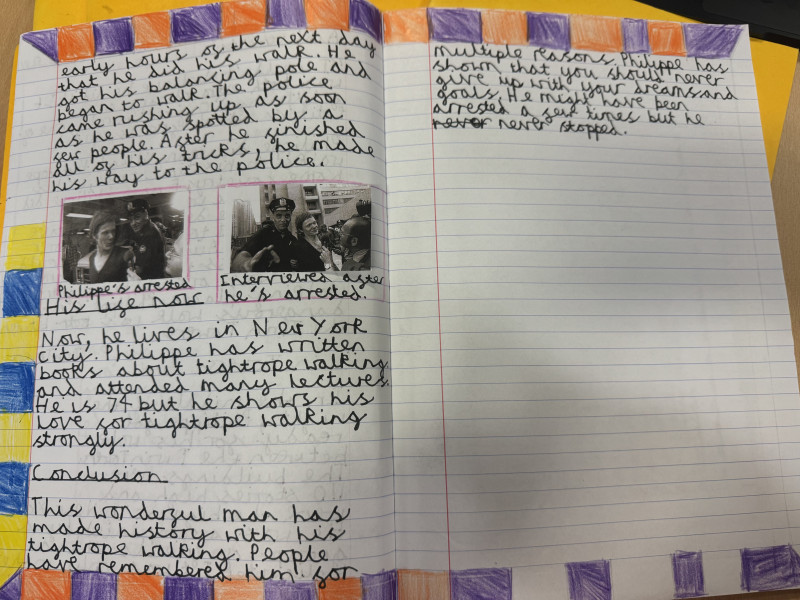 early hours of the next day
that he did his walk. He
got his balancing pole and
began to walk. The police
came rushing up as soon
as he was spotted by a
few people. After he finished
all of his tricks, he made
his way to the police.
Philippe's arrested
Interviewed after
he's arrested.
His life now
Now, he lives in New York
City. Philippe has written
books about tightrope walking
and attended many lectures.
He is 74 but he shows his
love for tightrope walking
strongly.
Conclusion
This wonderful man has
made history with his
tightrope walking. People
have remembered him for
multiple reasons. Philippe has
shown that you should never
give up with your dreams and
goals. He might have been
arrested a few times but he
never stopped.